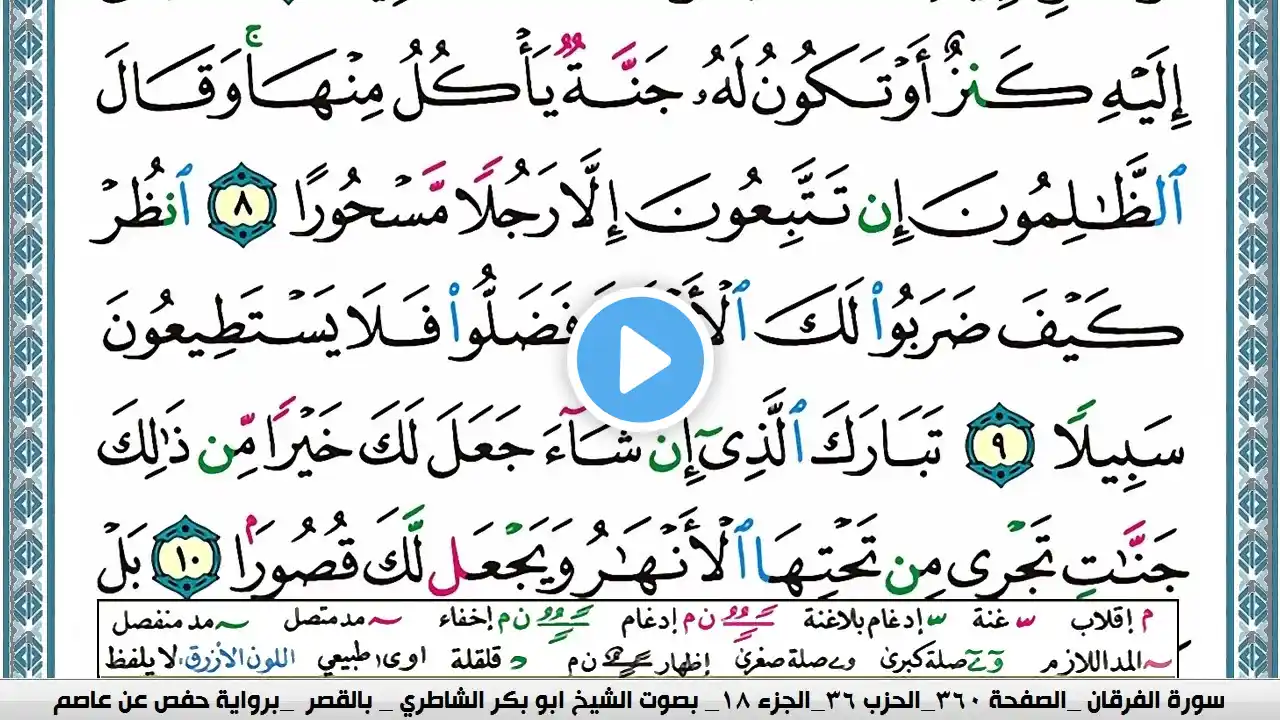 إِلَيْهِ كَنزٌ أَوْ تَكُونُ لَهُۥ جَنَّةٌ يَأْكُلُ مِنْهَا ۚ وَقَالَ
ٱلظَّٰلِمُونَ إِن تَتَّبِعُونَ إِلَّا رَجُلًا مَّسْحُورًا ٨ ٱنظُرْ
كَيْفَ ضَرَبُوا۟ لَكَ فَضَلُّوا۟ فَلَا يَسْتَطِيعُونَ
سَبِيلًا ٩ تَبَارَكَ ٱلَّذِىٓ إِن شَآءَ جَعَلَ لَكَ خَيْرًا مِّن ذَٰلِكَ
جَنَّٰتٍ تَجْرِى مِن تَحْتِهَا ٱلْأَنْهَٰرُ وَيَجْعَل لَّكَ قُصُورًۢا ١٠ بَلْ
م إقلاب ـس غنة ـس إدغام بلاغنة ن م إدغام ن م إخفاء ~ مد متصل ~ مد منفصل
~ المد اللازم صلة كبرى صلة صغرى ن م إظهار قلقلة اوى طبيعي اللون الأزرق: لا يلفظ
سورة الفرقان _الصفحة ٣٦٠_الحزب ٣٦_الجزء ١٨_ بصوت الشيخ ابو بكر الشاطري _ بالقصر _برواية حفص عن عاصم